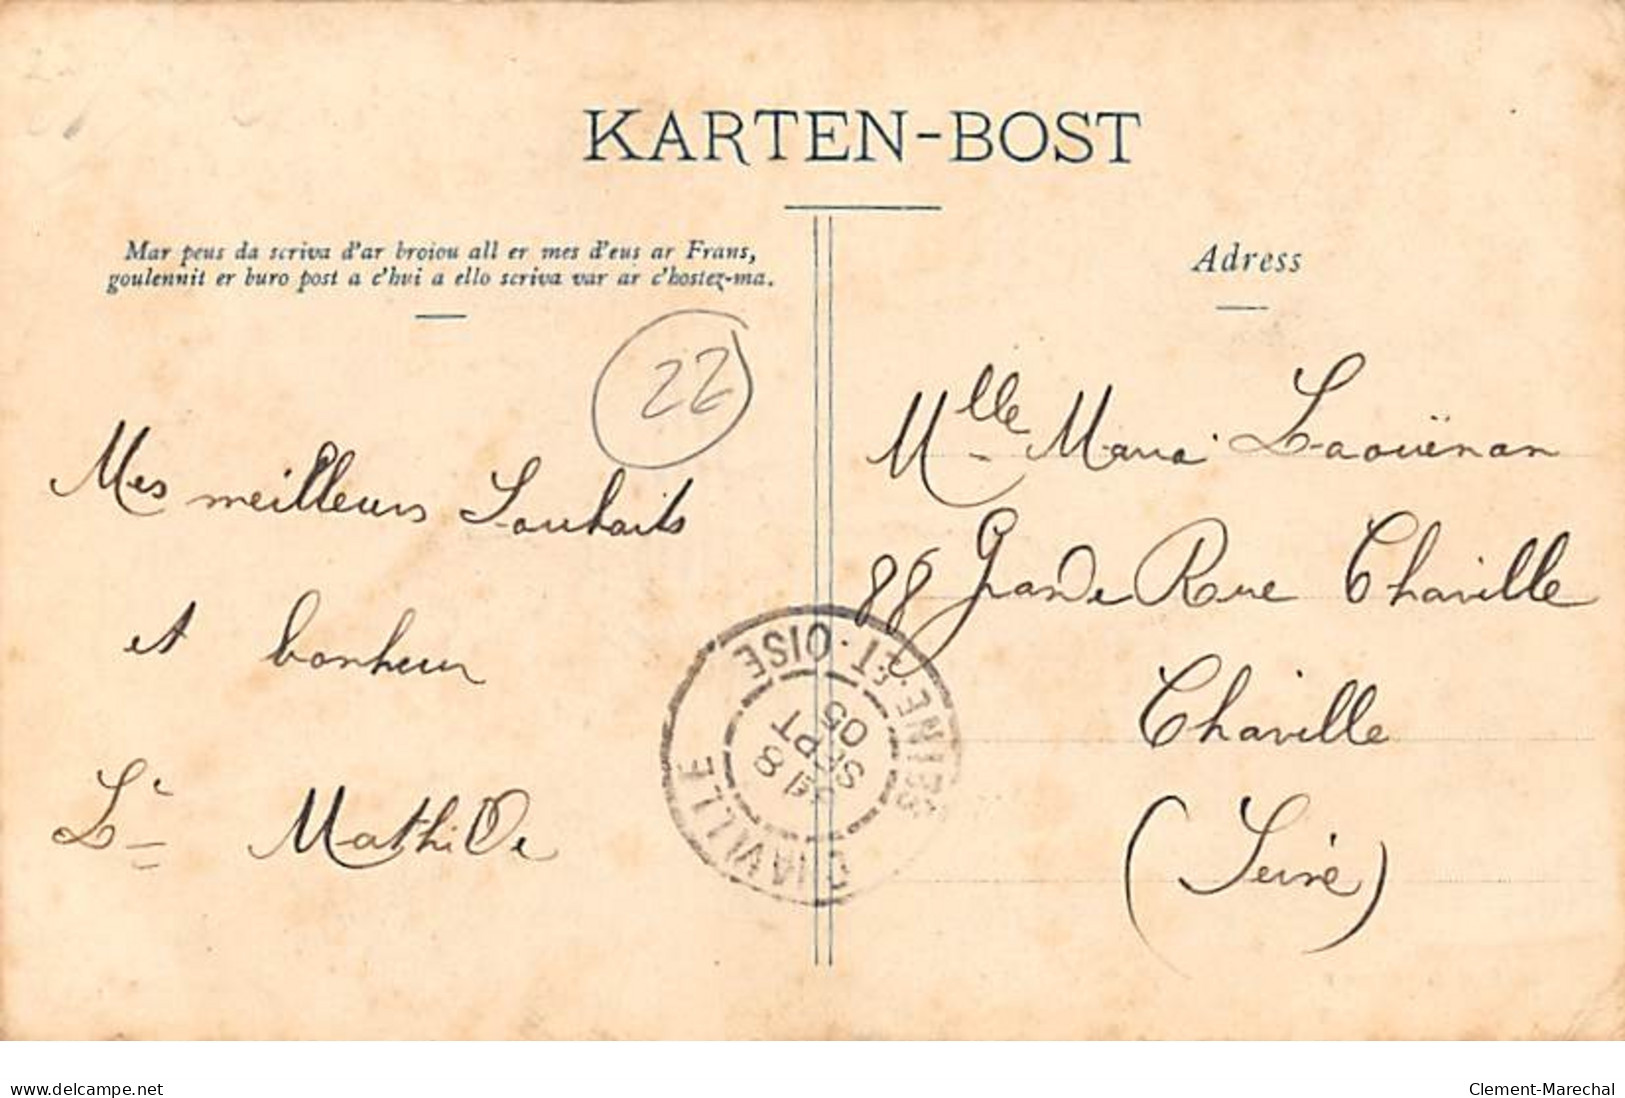 KARTEN-BOST
Mar peus da scriva d'ar broiou all er mes d'eus ar Frans,
goulennit er buro post a c'hui a ello scriva var ar c'hostez-ma.
Adress
22
Mes meilleurs Souhaits
et bonheur
Le Mathilde
Mlle Maria Laouënan
88 Grande Rue Chaville
Chaville
(Seine)
CHAVILLE
SEINE-ET-OISE
8
SEPT
05
www.delcampe.net
Clement-Marechal